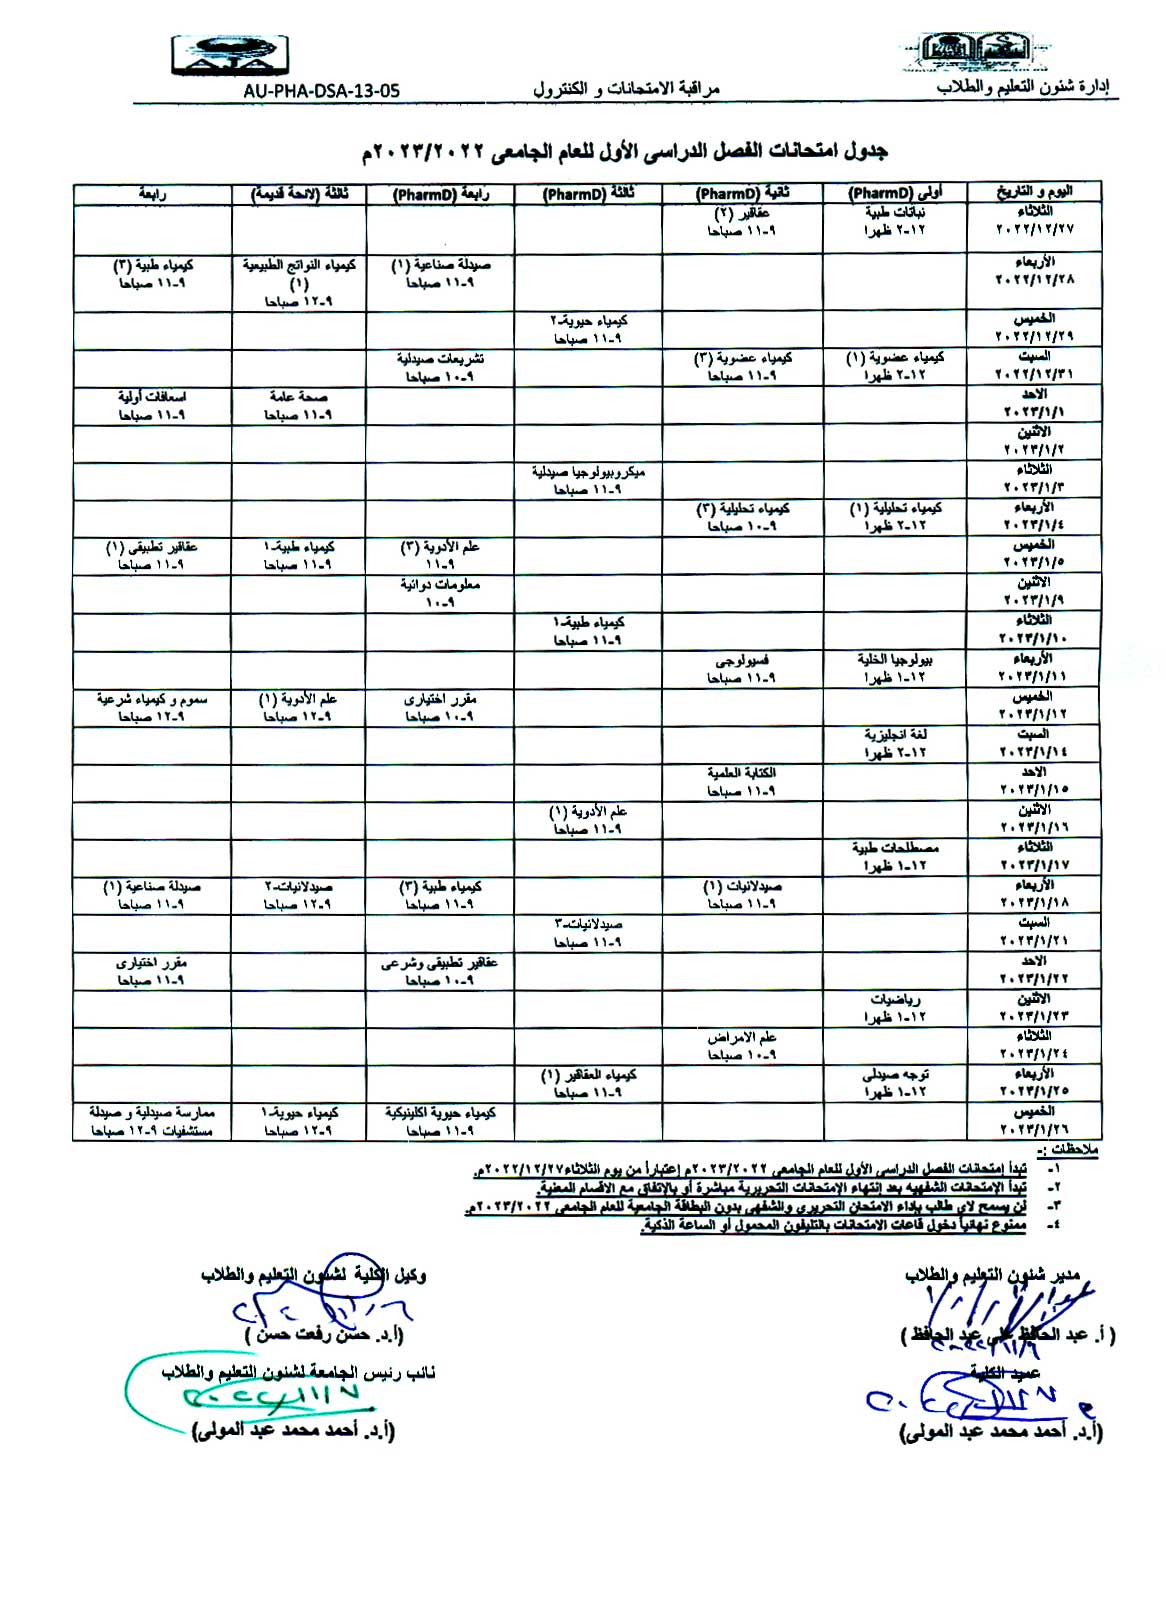 إدارة شئون التعليم والطلاب
مراقبة الامتحانات و الكنترول
AU-PHA-DSA-13-05
جدول امتحانات الفصل الدراسى الأول للعام الجامعى ٢٠٢٣/٢٠٢٢م
اليوم و التاريخ | أولى (PharmD) | ثانية (PharmD) | ثالثة (PharmD) | رابعة (PharmD) | ثالثة (لائحة قديمة) | رابعة
الثلاثاء | نباتات طبية | عقاقير (٢)
٢٠٢٢/١٢/٢٧ | ١٢-٢ ظهرا | ٩-١١ صباحا
الأربعاء | صيدلة صناعية (١) | كيمياء النواتج الطبيعية | كيمياء طبية (٣)
٢٠٢٢/١٢/٢٨ | ٩-١١ صباحا | (١) | ٩-١١ صباحا
٩-١٢ صباحا
الخميس | كيمياء حيوية-٢
٢٠٢٢/١٢/٢٩ | ٩-١١ صباحا
السبت | كيمياء عضوية (١) | كيمياء عضوية (٣) | تشريعات صيدلية
٢٠٢٢/١٢/٣١ | ١٢-٢ ظهرا | ٩-١١ صباحا | ٩-١٠ صباحا
الاحد | صحة عامة | اسعافات أولية
٢٠٢٣/١/١ | ٩-١١ صباحا | ٩-١١ صباحا
الاثنين
٢٠٢٣/١/٢
الثلاثاء | ميكروبيولوجيا صيدلية
٢٠٢٣/١/٣ | ٩-١١ صباحا
الأربعاء | كيمياء تحليلية (١) | كيمياء تحليلية (٣)
٢٠٢٣/١/٤ | ١٢-٢ ظهرا | ٩-١٠ صباحا
الخميس | علم الأدوية (٣) | كيمياء طبية-١ | عقاقير تطبيقى (١)
٢٠٢٣/١/٥ | ٩-١١ | ٩-١١ صباحا | ٩-١١ صباحا
الاثنين | معلومات دوائية
٢٠٢٣/١/٩ | ٩-١٠
الثلاثاء | كيمياء طبية-١
٢٠٢٣/١/١٠ | ٩-١١ صباحا
الأربعاء | بيولوجيا الخلية | فسيولوجى
٢٠٢٣/١/١١ | ١٢-١ ظهرا | ٩-١١ صباحا
الخميس | مقرر اختيارى | علم الأدوية (١) | سموم و كيمياء شرعية
٢٠٢٣/١/١٢ | ٩-١٠ صباحا | ٩-١٢ صباحا | ٩-١٢ صباحا
السبت | لغة انجليزية
٢٠٢٣/١/١٤ | ١٢-٢ ظهرا
الاحد | الكتابة العلمية
٢٠٢٣/١/١٥ | ٩-١١ صباحا
الاثنين | علم الأدوية (١)
٢٠٢٣/١/١٦ | ٩-١١ صباحا
الثلاثاء | مصطلحات طبية
٢٠٢٣/١/١٧ | ١٢-١ ظهرا
الأربعاء | صيدلانيات (١) | كيمياء طبية (٣) | صيدلانيات-٢ | صيدلة صناعية (١)
٢٠٢٣/١/١٨ | ٩-١١ صباحا | ٩-١١ صباحا | ٩-١٢ صباحا | ٩-١١ صباحا
السبت | صيدلانيات-٣
٢٠٢٣/١/٢١ | ٩-١١ صباحا
الاحد | عقاقير تطبيقى وشرعى | مقرر اختيارى
٢٠٢٣/١/٢٢ | ٩-١٠ صباحا | ٩-١١ صباحا
الاثنين | رياضيات
٢٠٢٣/١/٢٣ | ١٢-١ ظهرا
الثلاثاء | علم الامراض
٢٠٢٣/١/٢٤ | ٩-١٠ صباحا
الأربعاء | توجه صيدلى | كيمياء العقاقير (١)
٢٠٢٣/١/٢٥ | ١٢-١ ظهرا | ٩-١١ صباحا
الخميس | كيمياء حيوية اكلينيكية | كيمياء حيوية-١ | ممارسة صيدلية و صيدلة
٢٠٢٣/١/٢٦ | ٩-١١ صباحا | ٩-١٢ صباحا | مستشفيات ٩-١٢ صباحا
ملاحظات :-
١- تبدأ إمتحانات الفصل الدراسى الأول للعام الجامعى ٢٠٢٣/٢٠٢٢م إعتباراً من يوم الثلاثاء٢٠٢٢/١٢/٢٧م.
٢- تبدأ الإمتحانات الشفهيه بعد إنتهاء الإمتحانات التحريرية مباشرة أو بالإتفاق مع الاقسام المعنية.
٣- لن يسمح لاى طالب بإداء الامتحان التحريري والشفهي بدون البطاقة الجامعية للعام الجامعى ٢٠٢٣/٢٠٢٢م.
٤- ممنوع نهائياً دخول قاعات الامتحانات بالتليفون المحمول أو الساعة الذكية.
مدير شئون التعليم والطلاب
وكيل الكلية لشئون التعليم والطلاب
( أ. عبد الحافظ على عبد الحافظ )
(أ.د. حسن رفعت حسن )
عميد الكلية
نائب رئيس الجامعة لشئون التعليم والطلاب
(أ.د. أحمد محمد عبد المولى)
(أ.د. أحمد محمد عبد المولى)